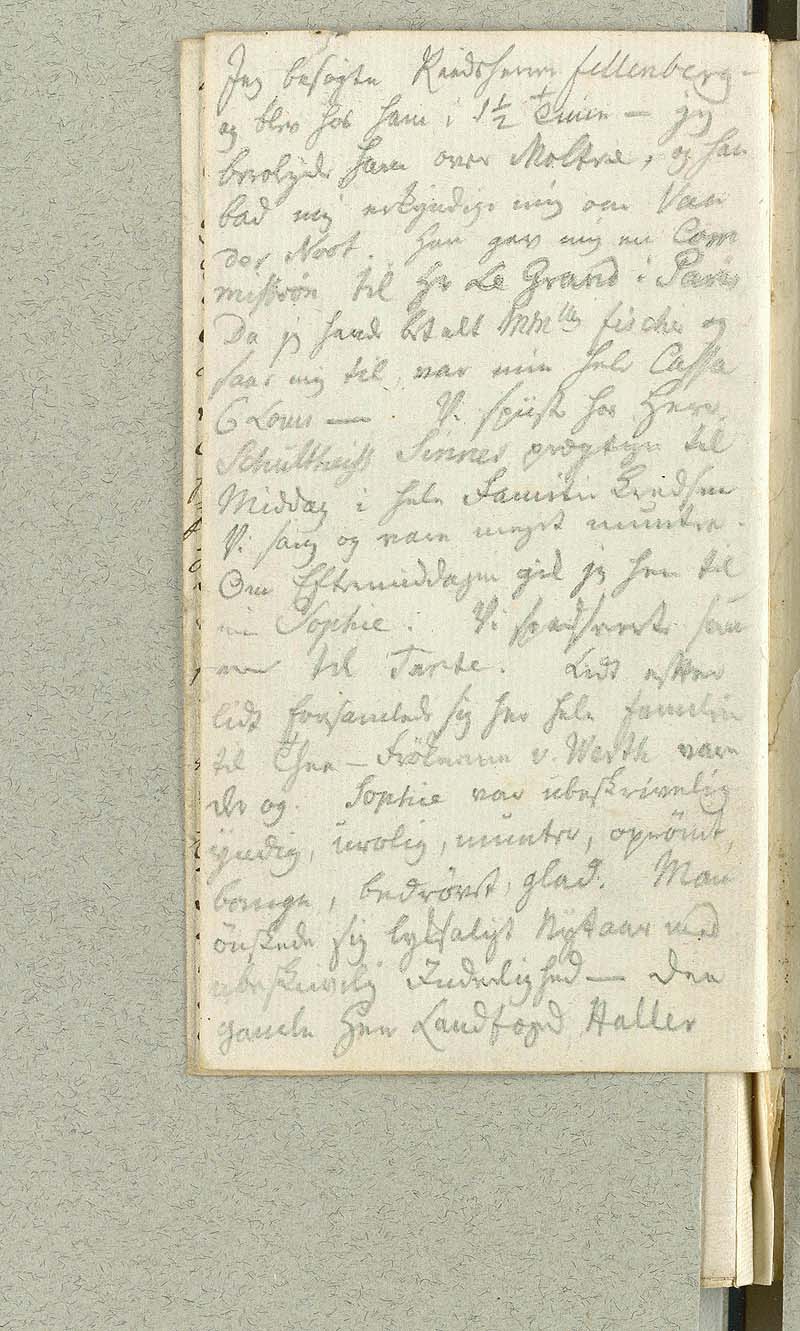 Jeg besøgte Raadsherre Fellenberg –
og blev hos ham i 1½ Time – jeg
beroligede ham over Moltke, og han
bad mig erkyndige mig om Van
der Noot. Han gav mig en Com
mission til Hr Le Grand i Paris
Da jeg havde betalt Mmlle Fischer og
faaet mig til, var min hele Cassa
6 Louis — . Vi spiste hos Herr
Schultheiss Sinner prægtigen til
Middag i hele Familie Kredsen
Vi sang og vare meget muntre.
Om Eftermiddagen gik jeg hen til
min Sophie. Vi spadserte sam
men til Tante. Lidt efter
lidt forsamlede sig her hele Familien
til Thee – Frökenerne v. Werth vare
der og. Sophie var ubeskrivelig
yndig, urolig, munter, oprömt,
bange, bedrövet, glad. Man
önskede sig lyksaligt Nytaar med
ubeskrivelig Inderlighed — Den
gamle Herr Landfoged Haller